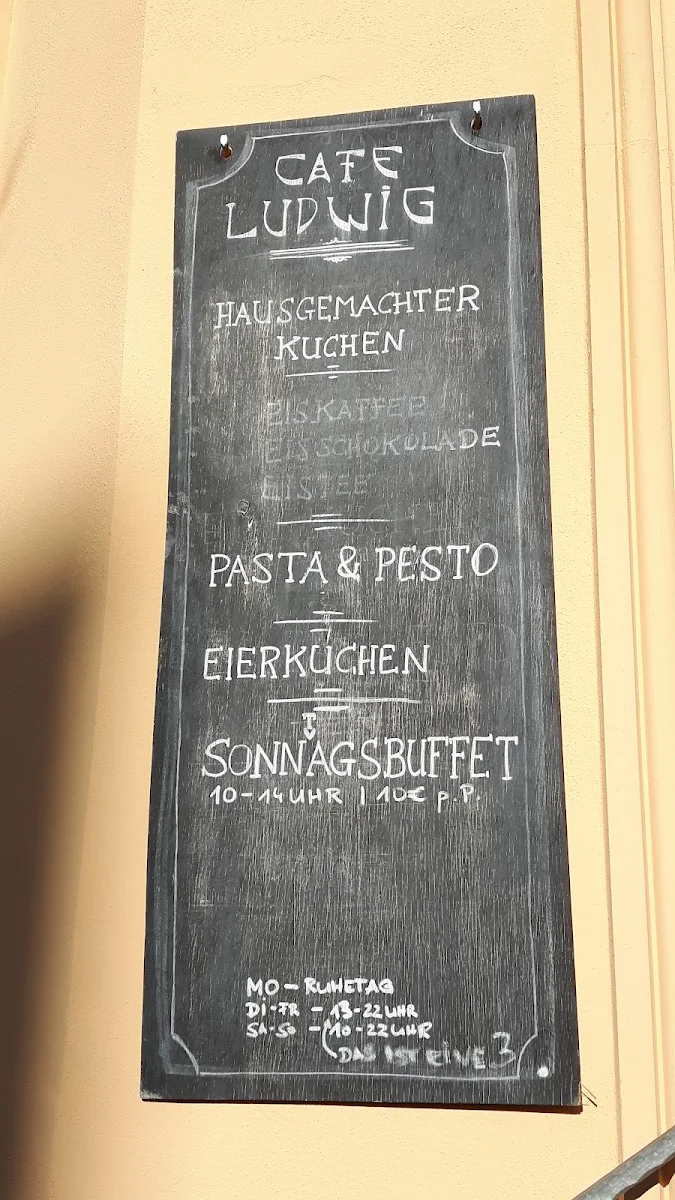 CAFE
LUDWIG
HAUSGEMACHTER
KUCHEN
EISKAFFEE
EISSCHOKOLADE
EISTEE
PASTA & PESTO
EIERKUCHEN
T
SONNAGSBUFFET
10-14 UHR | 10€ p.P.
MO - RUHETAG
DI-FR - 13-22 UHR
SA-SO - 10-22 UHR
DAS IST EINE 3